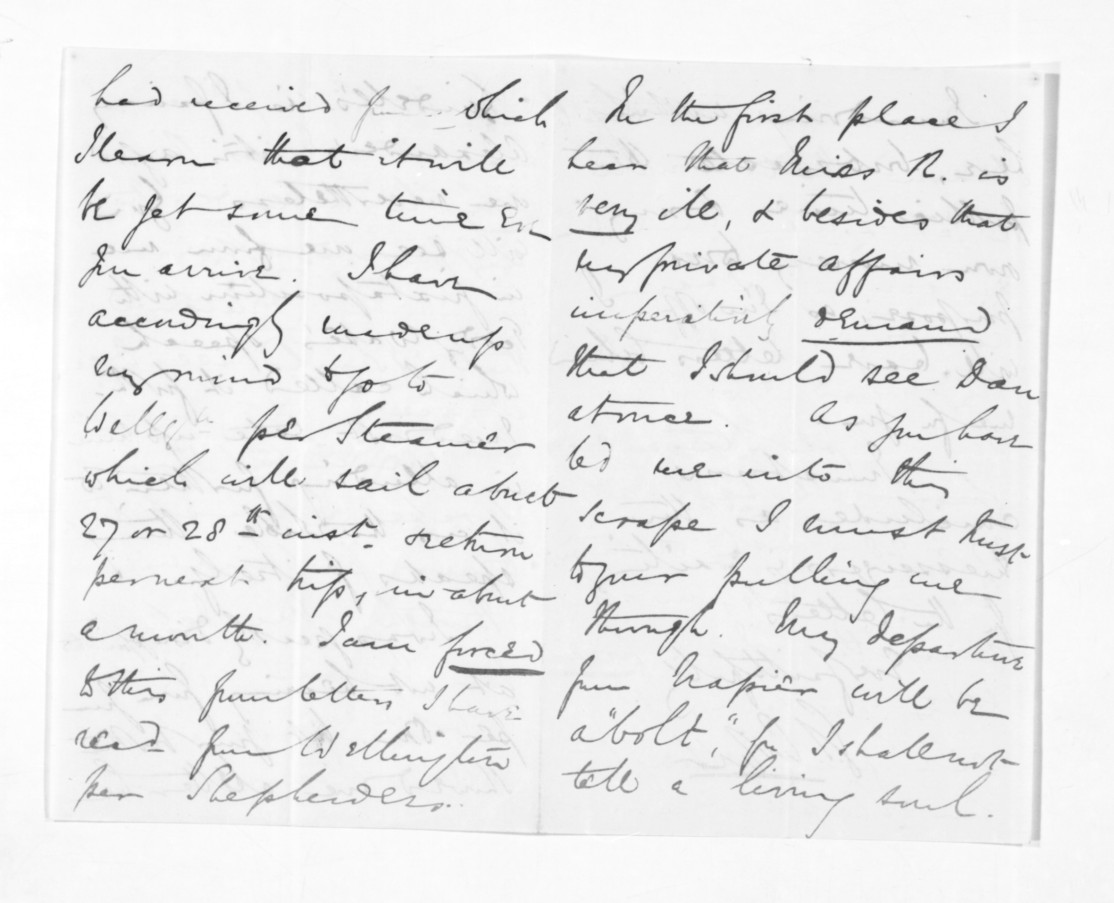 had received from which
I learn that it will
be yet some time ere
you arrive. I have
accordingly made up
my mind to go to
Wellgtn per Steamer
which will sail about
27 or 28th inst. & return
per next trip, in about
a month. I am forced
to this from letters I have
recd from Wellington
per Shepherdess.
In the first place I
hear that Miss R. is
very ill, & besides that
my private affairs
imperatively demand
that I should see Dan
at once. As you have
led me into this
scrape I must trust
to your pulling me
through. My departure
from Napier will be
a "bolt", for I shall not
tell a living soul.